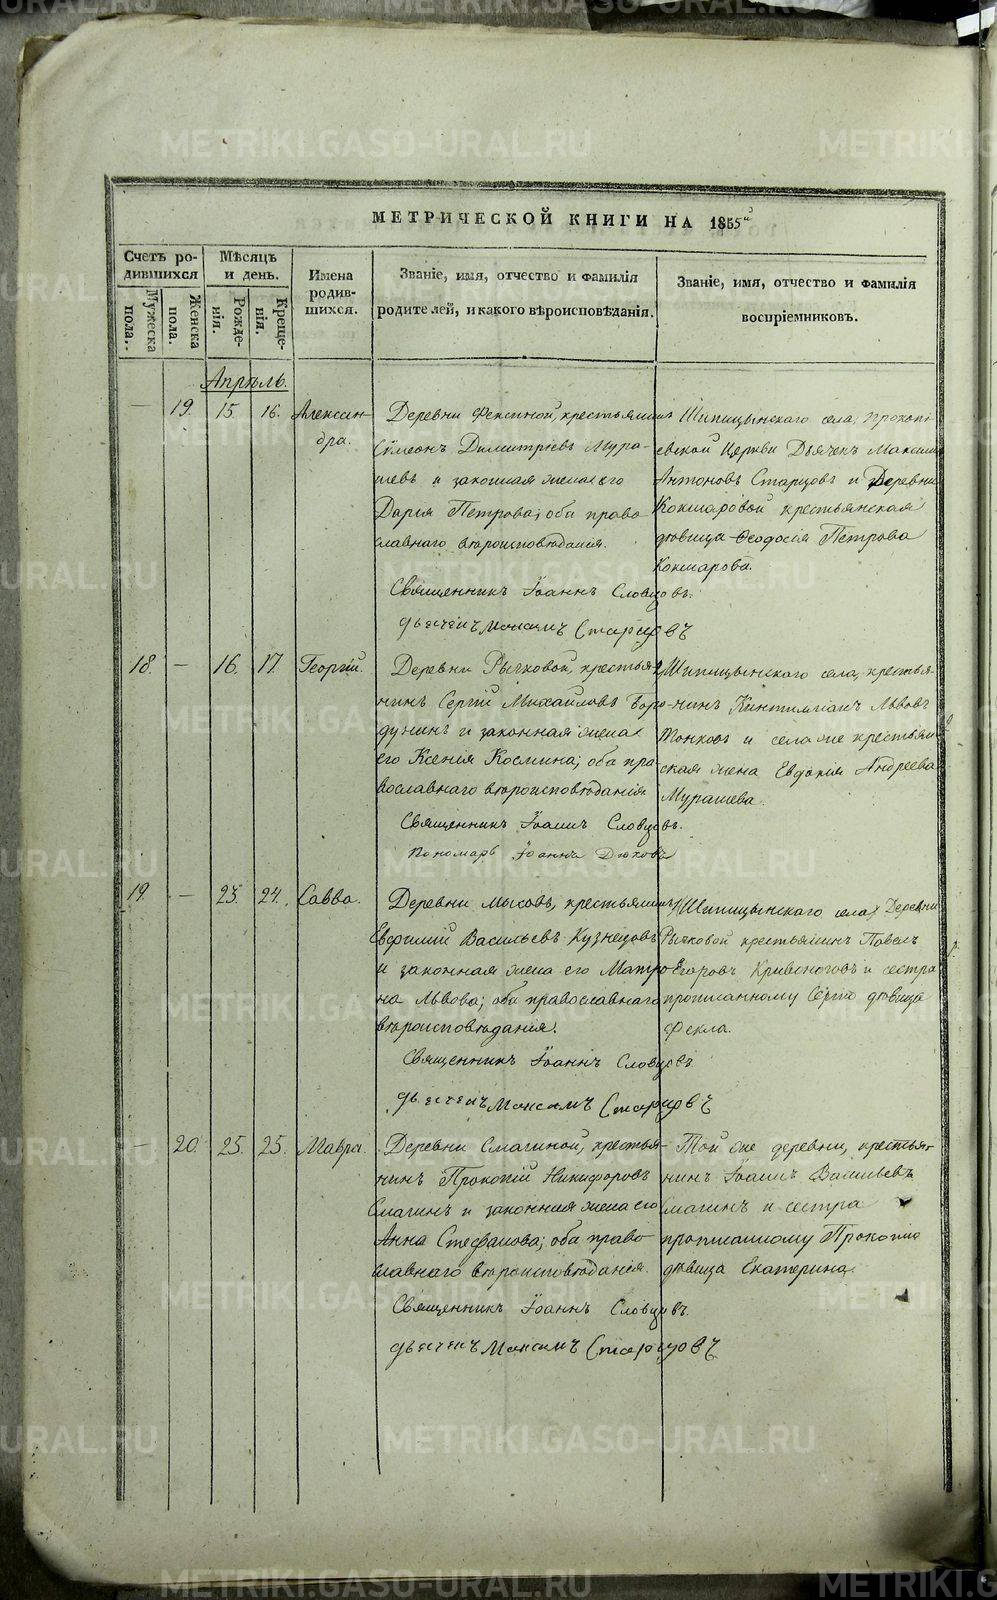 МЕТРИЧЕСКОЙ КНИГИ НА 1855й
Счетъ родившихся
Мужеска пола.
Женска пола.
Мѣсяцъ и день.
Рожденія.
Крещенія.
Имена родившихся.
Званіе, имя, отчество и фамилія
родителей, и какого вѣроисповѣданія.
Званіе, имя, отчество и фамилія
воспріемниковъ.
Апрѣль.
— 19. 15. 16. Александра.
Деревни крестьянинъ
Сѵмеонъ Димитріевъ Мура-
шевъ и законная жена его
Дарья Петрова; оба право
славнаго вѣроисповѣданія.
Священникъ Іоаннъ Словцовъ.
Дьячекъ Максимъ Старцовъ
Шипицынскаго села, Прокопі-
евской Церкви Дьячек Максимъ
Антоновъ Старцовъ и Деревни
Кокшаровой крестьянская
дѣвица Ѳеодосія Петрова
Кокшарова.
18. — 16. 17. Георгій.
Деревни Рычковой, крестья-
нинъ Сергій Михайловъ Боро-
дунинъ и законная жена
его Ксенія Космина; оба пра-
вославнаго вѣроисповѣданія
Священникъ Іоаннъ Словцовъ.
Пономарь Іоаннъ Дюковъ
Шипицынскаго села, крестья-
нинъ Львовъ
и села же крестьян
ская жена Евдокія Андреева
Мурашева.
19. — 23. 24. Савва.
Деревни крестьянинъ
Евфимій Васильевъ Кузнецовъ
и законная жена его Матро
на Львова; оба православнаго
вѣроисповѣданія.
Священникъ Іоаннъ Словцовъ
Дьячекъ Максимъ Старцовъ
Шипицынскаго села, Деревни
Рычковой крестьянинъ Павелъ
Егоровъ Кривоноговъ и сестра
прописанному дѣвица
Фекла.
— 20. 25. 25. Мавра.
Деревни Смагиной, крестья-
нинъ Прокопій Никифоровъ
Смагинъ и законная жена его
Анна Стефанова; оба право
славнаго вѣроисповѣданія.
Священникъ Іоаннъ Словцовъ.
Дьячекъ Максимъ Старцовъ
Той же деревни, крестья-
нинъ Іоаннъ Васильевъ
Смагинъ и сестра
прописанному Прокопію
дѣвица Екатерина
METRIKI.GASO-URAL.RU